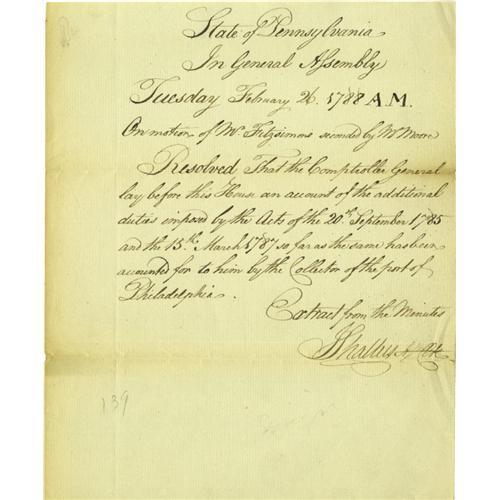 State of Pennsylvania
In General Assembly
Tuesday February 26. 1788 A.M.
On motion of Mr Fitzsimons seconded by Mr Moore
Resolved That the Comptroller General
lay before this House an account of the additional
duties imposed by the Acts of the 20th September 1785
and the 15th March 1787 so far as the same has been
accounted for to him by the Collector of the port of
Philadelphia.
Extract from the Minutes
J Shallus
139